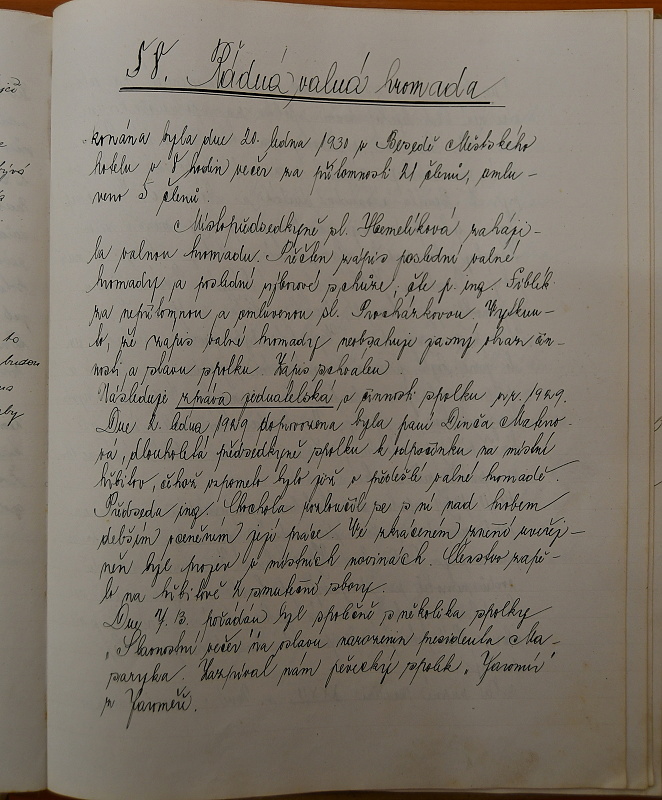 58. Řádná valná hromada
konána byla dne 20. ledna 1930 v Besedě Městského
hotelu v 8 hodin večer za přítomnosti 21 členů, omlu-
veno 5 členů.
Místopředsedkyně sl. Hemelíková zaháji-
la valnou hromadu. Přečten zápis poslední valné
hromady a poslední výborové schůze, čte p. ing.
za nepřítomnou a omluvenou sl. Procházkovou. Vytknu-
to, že zápis valné hromady neobsahuje jasný obraz čin-
nosti a stavu spolku. Zápis schválen.
Následuje zpráva jednatelská o činnosti spolku v r. 1929.
Dne 2. ledna 1929 doprovozena byla paní
vá, dlouholetá předsedkyně spolku k odpočinku na místní
hřbitov, čehož vzpometo bylo již v předešlé valné hromadě.
Předseda ing. Chochola rozloučil se s ní nad hrobem
delším oceněním její práce. Ve zkráceném znění uveřej-
něn byl projev v místních novinách. Členstvo zapě-
lo na hřbitově 2 smuteční sbory.
Dne 7./3. pořádán byl společně s několika spolky
„Slavnostní večer“ na oslavu narozenin presidenta Ma-
saryka. Zazpíval nám pěvecký spolek „Jaromír“
z Jaroměře.